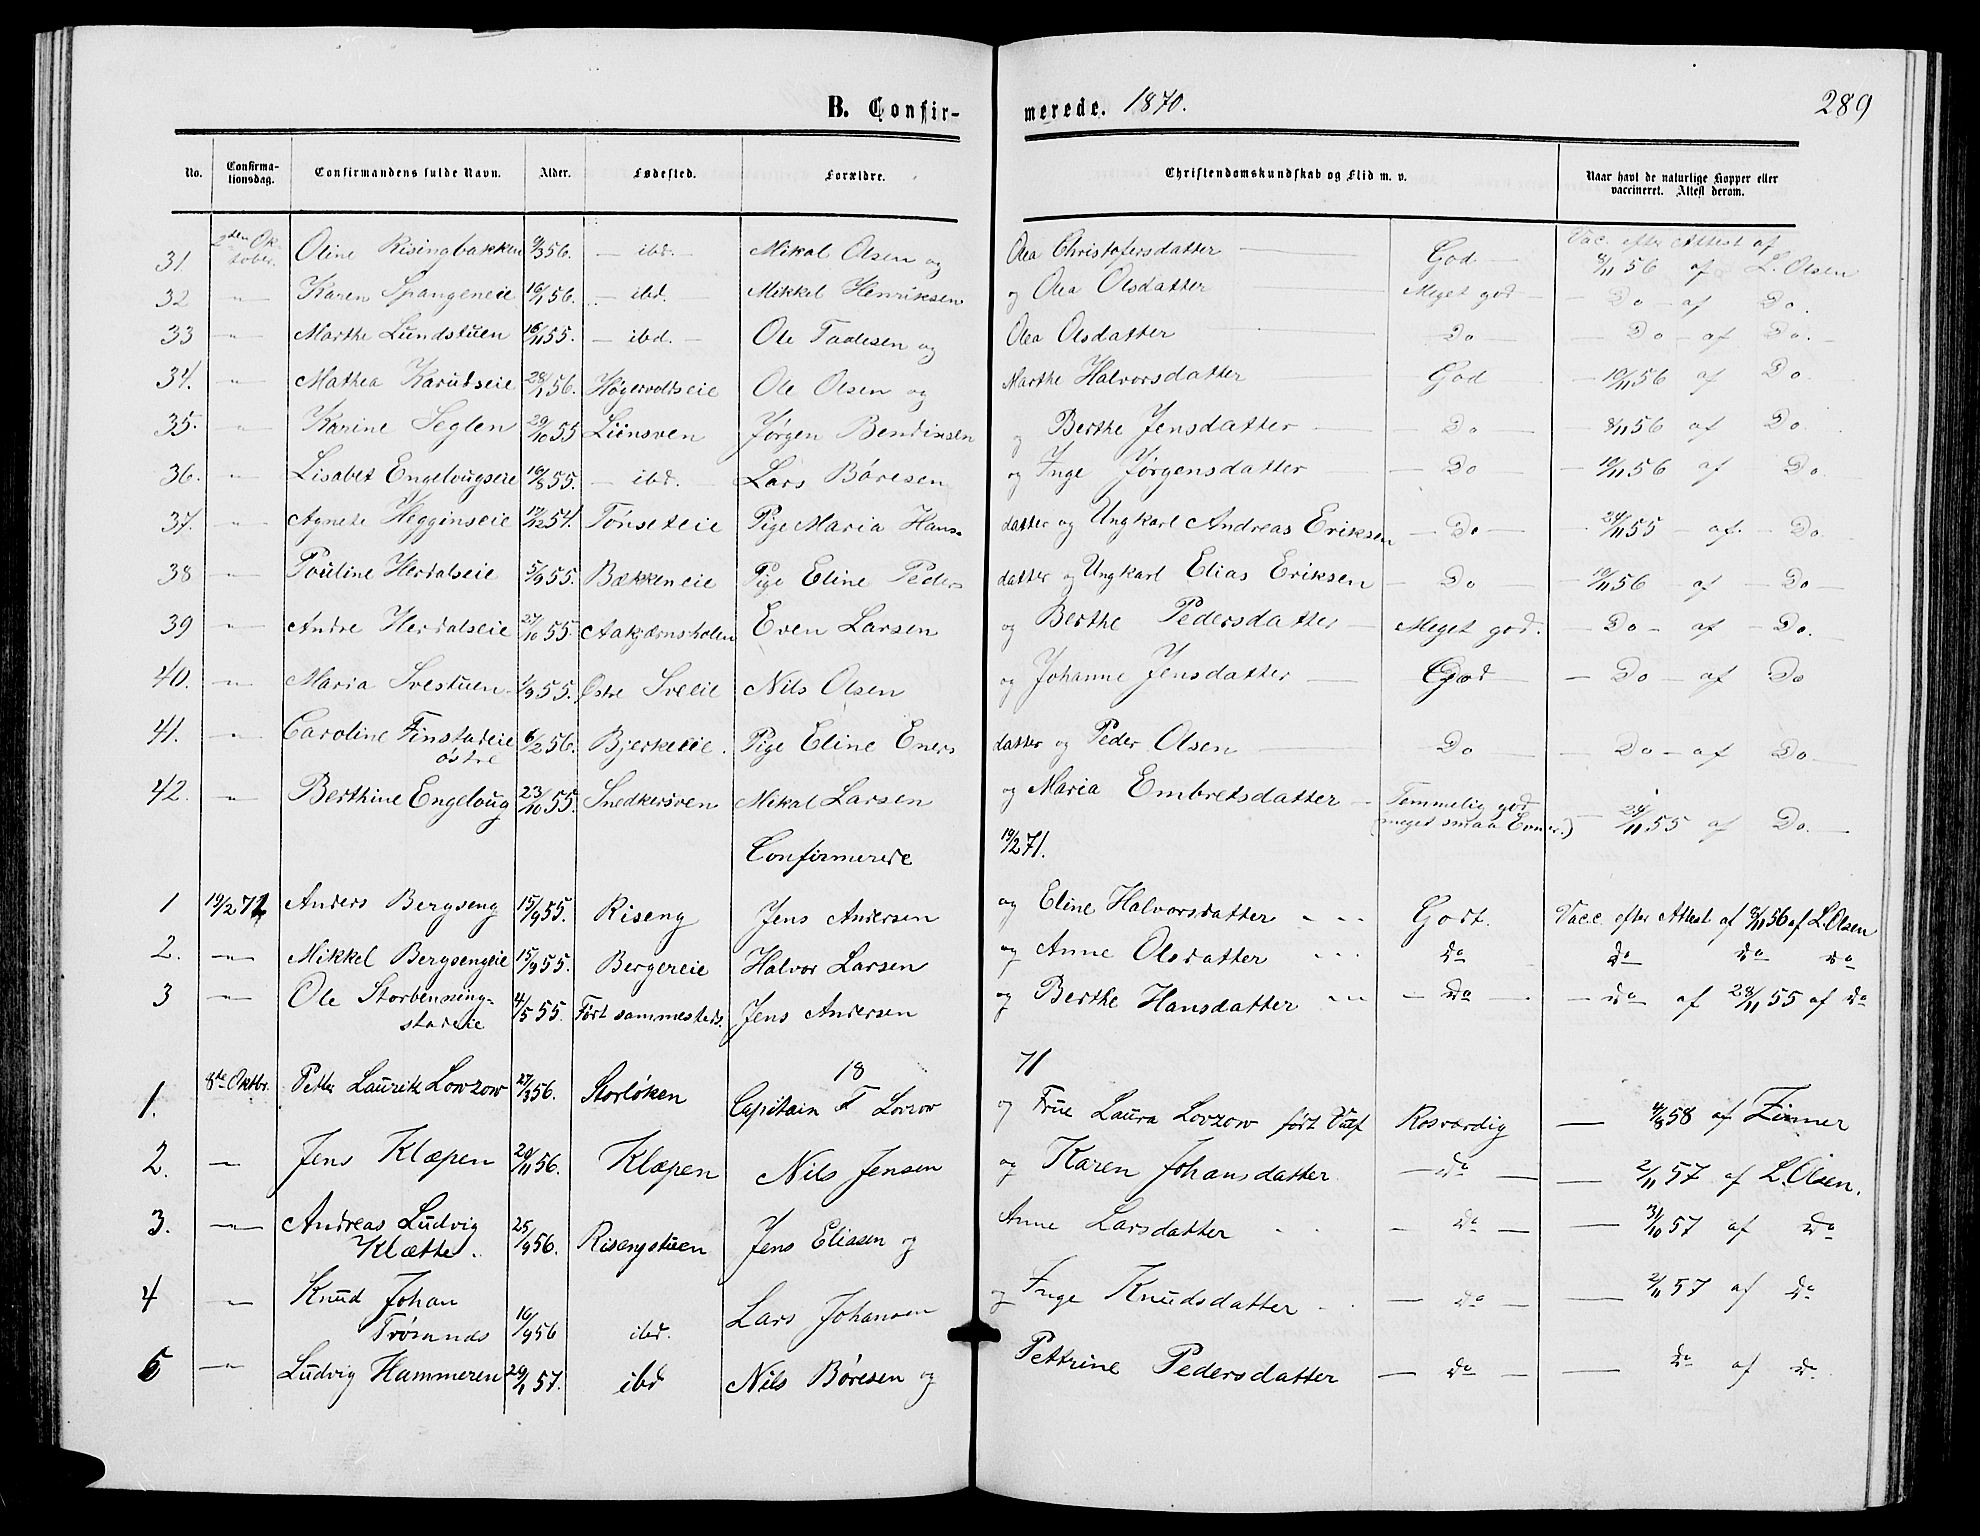 B. Confir- merede. 1870. 289
No. Confirma-tionsdag. Confirmandens fulde Navn. Alder. Fødested. Forældre. Christendomskundskab og Flid m. v. Naar havt de naturlige Kopper eller vaccineret. Attest derom.
31 2den Oktober. Oline Risingbakken 9/3 56. — ibd. — Mikal Olsen og Olea Christofersdatter — God — Vac. efter Attest af 8/11 56 af L. Olsen
32 — " — Karen Spangeneie 16/1 56. — ibd. Mikkel Henriksen og Olea Olsdatter Meget god — — Do — af Do.
33 — " — Marthe Lundstuen 16/11 55. — ibd. — Ole Tadesen og Olea Olsdatter — Do — — Do — af Do. —
34. — " — Mathea Karudseie 28/1 56. Høgervoldseie Ole Olsen og Marthe Halvorsdatter God — — 10/11 56 af Do.
35. — " — Karine Seglen 29/10 55 Liensven Jørgen Bendixsen og Berthe Jensdatter — — Do — — 8/11 56 af Do
36. — " — Lisabet Engelougseie 16/8 55. — ibd. — Lars Børesen og Inge Jørgensdatter — Do — — 10/11 56 af Do.
37. — " — Agnete Hegginseie 19/12 54. Tønseteie Pige Maria Hans-datter og Ungkarl Andreas Eriksen — Do — - 24/11 55 — af. - Do.
38 — " — Pouline Herdalseie 5/9 55. Bækkeneie Pige Eline Peders datter og Ungkarl Elias Eriksen — Do — — 10/11 56 af — Do —
39 — " — Andre Herdalseie 27/10 55. Even Larsen og Berthe Pedersdatter — Meget god. — Do — af — Do.
40. — " — Maria Svestuen 1/9 55. Østre Sveeie Nils Olsen og Johanne Jensdatter — God — — Do — af Do
41. — " — Caroline Finstadeie østre 6/2 56. Bjerkeeie. Pige Eline Eners datter og Peder Olsen Do — — Do — af Do —
42. — " — Berthine Engeloug 23/10 55. Snedkersven Mikal Larsen og Maria Embretsdatter — Temmelig god (meget smaa Evner.) — 24/11 55 af Do. —
Confirmerede 19/2 71.
1 19/2 71 Anders Bergseng 15/9 55. Riseng Jens Andersen og Eline Halvorsdatter - - - Godt. Vacc. efter Attest af 8/11 56 af L. Olsen
2. — " — Mikkel Bergsengeie 15/9 55. Bergereie Halvor Larsen og Anne Olsdatter - - - do do do do
3 — " — Ole Storbenning-stadeie 4/5 55. Født sammesteds. Jens Andersen og Berthe Hansdatter - - - — do — — do af 28/11 55 af do
18 71
1. 8de Oktbr. Petter Lauritz Lowzow 27/3 56. Storløken Capitain F Lovzow og Frue Laura Lovzow født Rosværdig — 4/8 58 af Zimer
2. — " — Jens Klæpen 20/11 56. Klæpen Nils Jensen og Karen Johansdatter — do — — 2/11 57 af L. Olsen.
3. — " — Andreas Ludvig Klætte. 25/9 56. Risengstuen Jens Eliasen og Anne Larsdatter — do — — 31/10 57 af do
4 — " — Knud Johan Trøsunds 16/9 56 ibd. Lars Johansen og Inge Knudsdatter — do — — 2/11 57 af do
5 — " — Ludvig Hammeren 20/1 57. ibd Nils Børesen og Pettrine Pedersdatter — do — — do af do